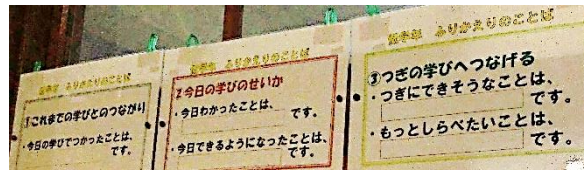 低学年 ふりかえりのことば
①これまでの学びとのつながり
・今日の学びでつかったことは、
です。
低学年 ふりかえりのことば
2今日の学びのせいか
・今日わかったことは、
です。
・今日できるようになったことは、
です。
低学年 ふりかえりのことば
③つぎの学びへつなげる
・つぎにできそうなことは、
です。
・もっとしらべたいことは、
です。